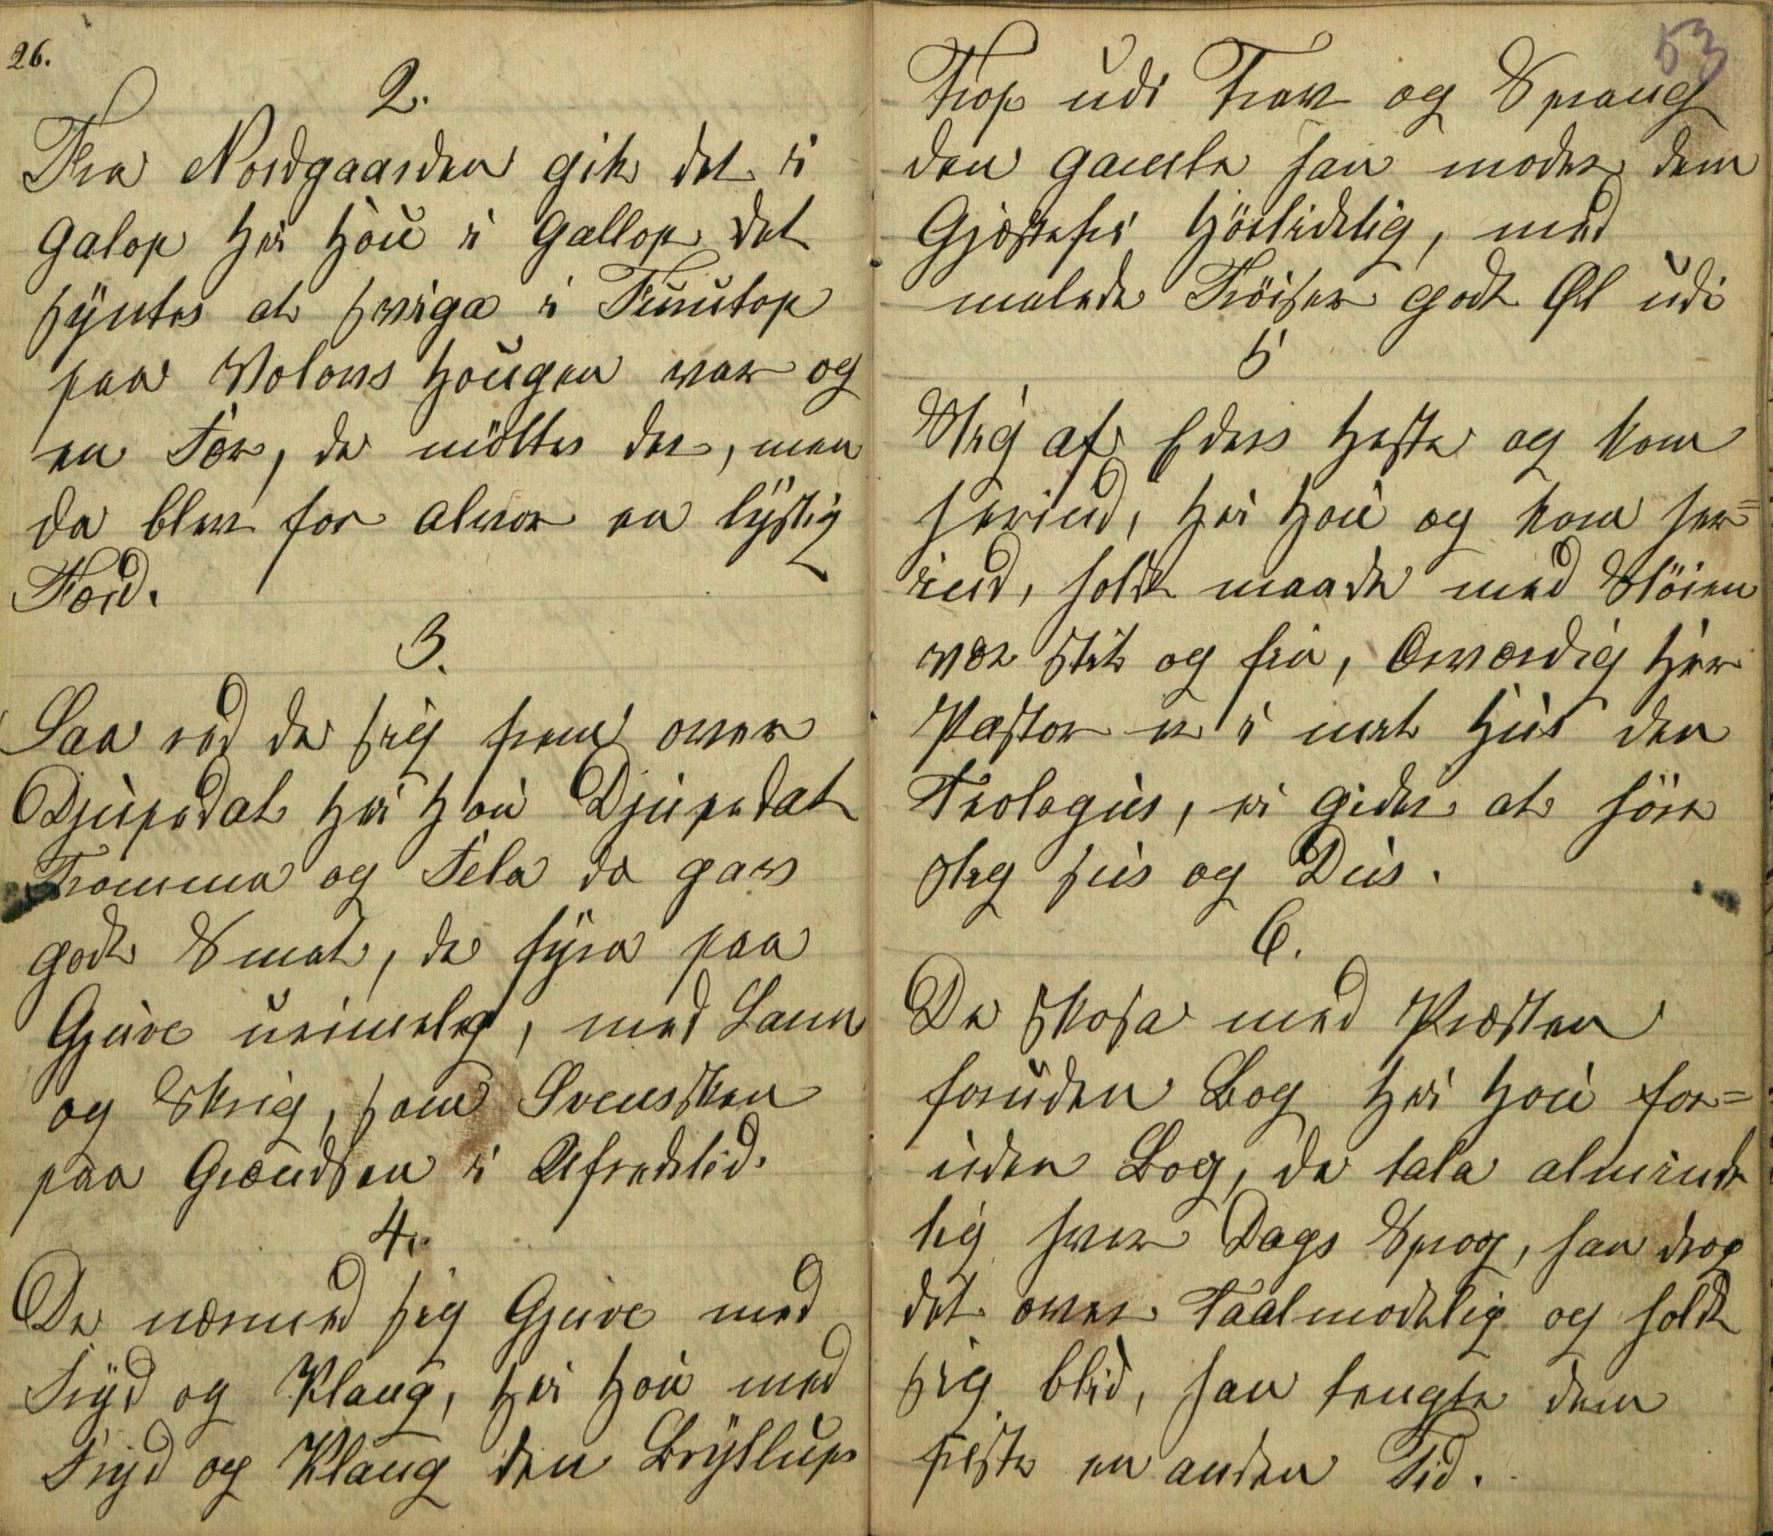 26.
2.
Fra Nordgaarden gik det i
Galop Hei Hou i Gallop det
syntes at sviga i Furutop
paa Volons Hougen var og
en Tær, de möltes der, men
da blev for alvor en lystig
Færd.
3.
Saa red de sig frem over
Djupedal Hei Hou Djupedal
Tromma og Fela da gav
godt Smal, de fyra paa
Gjuve urimeleg, med Larm
og Skrig, som Svensken
paa Grændsen i Ufredstid.
4.
De nærmed sig Gjuve med
Fryd og Klang, Hei Hou med
Fryd og Klang den Bryllups
53
Trop udi Trav og Sprang
den gamle han moder dem
Gjæstefri Höflidelig, med
malede Kröiser godt Øl udi
5
Stig af Eders Heste og kom
herind, Hei Hou og kom her=
ind, holdt maade med Støien
vær stil og fin, Ærværdig Her
Pastor er i mit Hus den
Teologus, ei gider at høre
sleg sus og Dus.
6.
De skosa med Præsten
foruden Bog Hei Hou for=
uden Bog, de tala alminde
lig hver Dags Sprog, han drog
det over Taalmodelig og holdt
sig blid, han fengte dem
sidste en anden Tid.